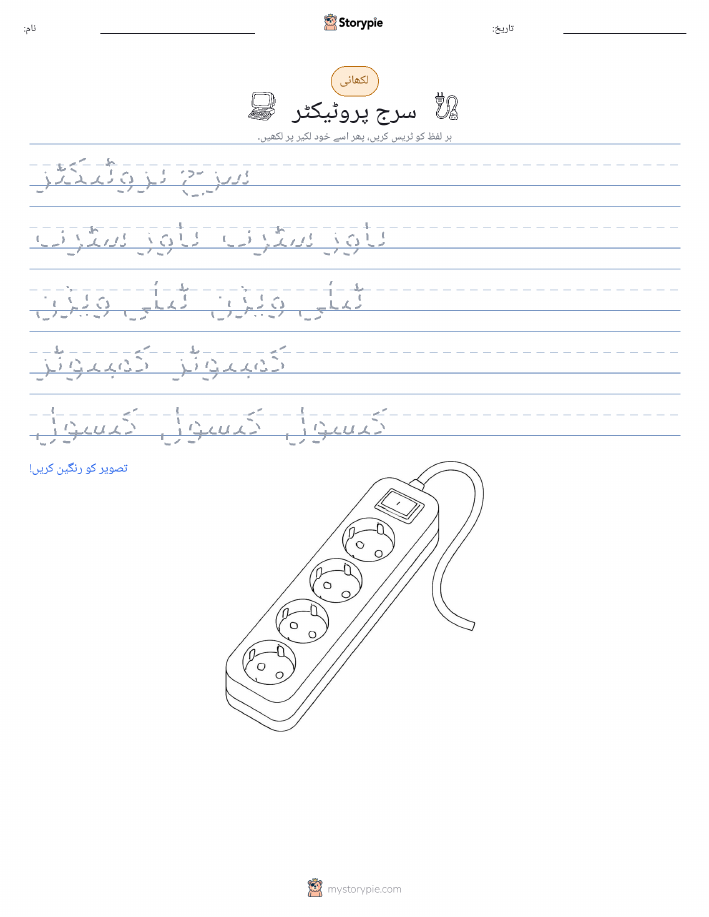 Storypie
نام:
تاریخ:
لکھائی
سرج پروٹیکٹر
ہر لفظ کو ٹریس کریں، پھر اسے خود لکیر پر لکھیں۔
سرج پروٹیکٹر
پاور سٹرپ پاور سٹرپ
ٹیلی ویژن ٹیلی ویژن
کمپیوٹر کمپیوٹر
کنسول کنسول کنسول
تصویر کو رنگین کریں!
mystorypie.com